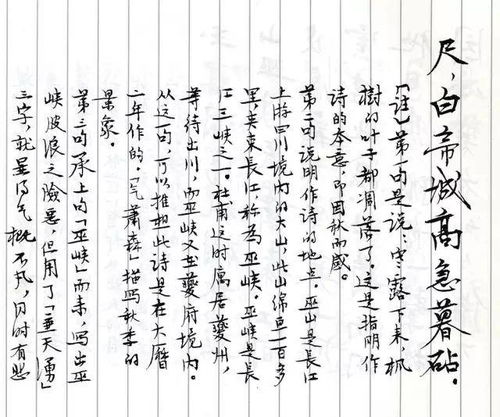 尺,白帝城高急暮砧。
「註」第一句是说:露下来枫
樹的叶子都凋落了,这是指明作
诗的本意,即因秋而感。
第二句说明作诗的地点。巫山是長江
上游四川境内的大山,此山绵亘一百多
里,夹束長江,称為巫峡。巫峡是長
江三峡之一。杜甫这时寓居夔州,
等待出川,而巫峡又在夔府境内。
从这一句,可以推知此诗是在大曆
二年作的。“气蕭森”描写秋季的
景象。
第三句承上句「巫峡」而来,写出巫
峡波浪之險惡,但用了「兼天湧」
三字,就显得气概不凡,同时有思